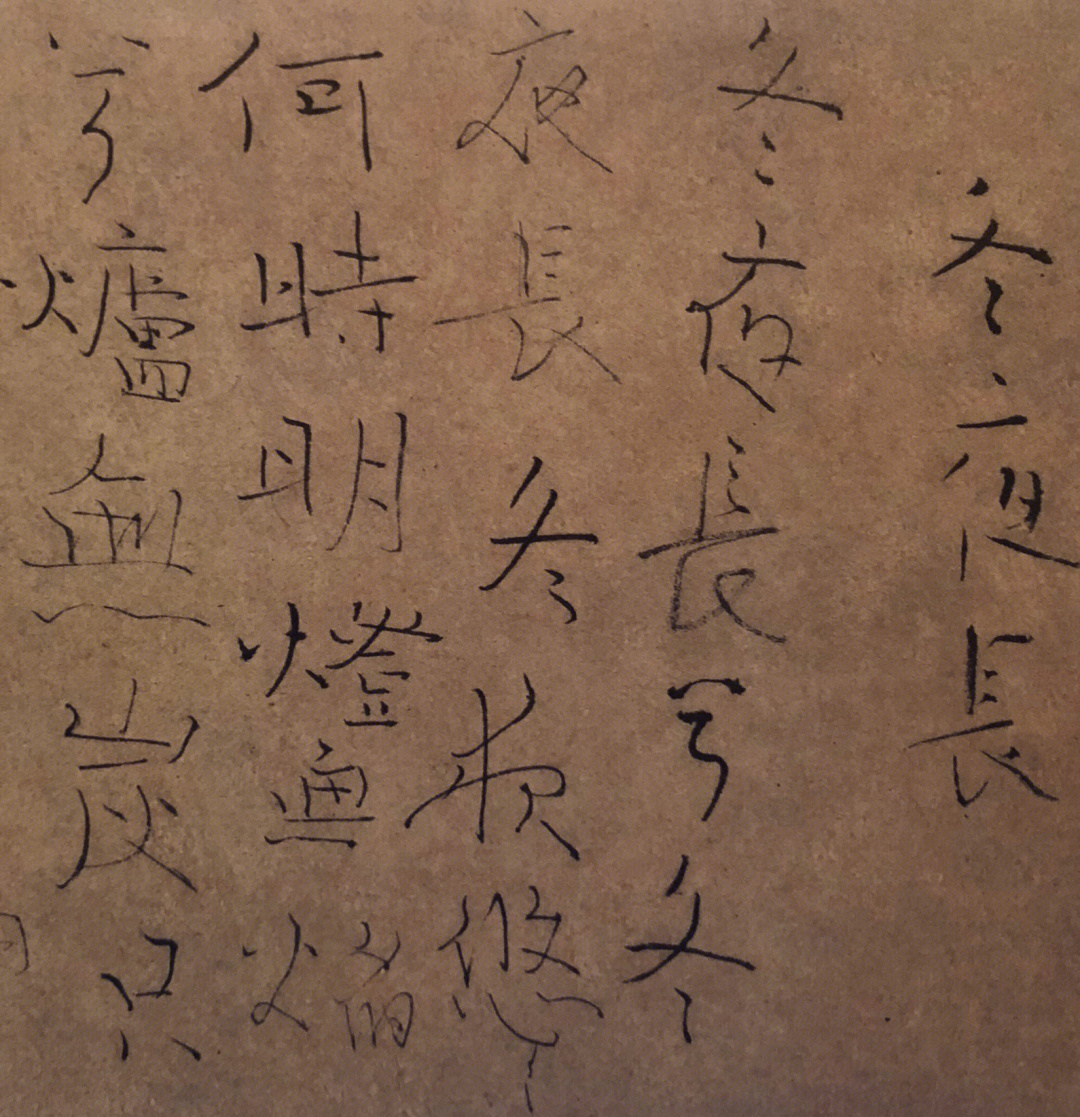 冬夜長
冬夜長兮冬
夜長冬夜悠々
何時明燈無焰
兮爐無炭只